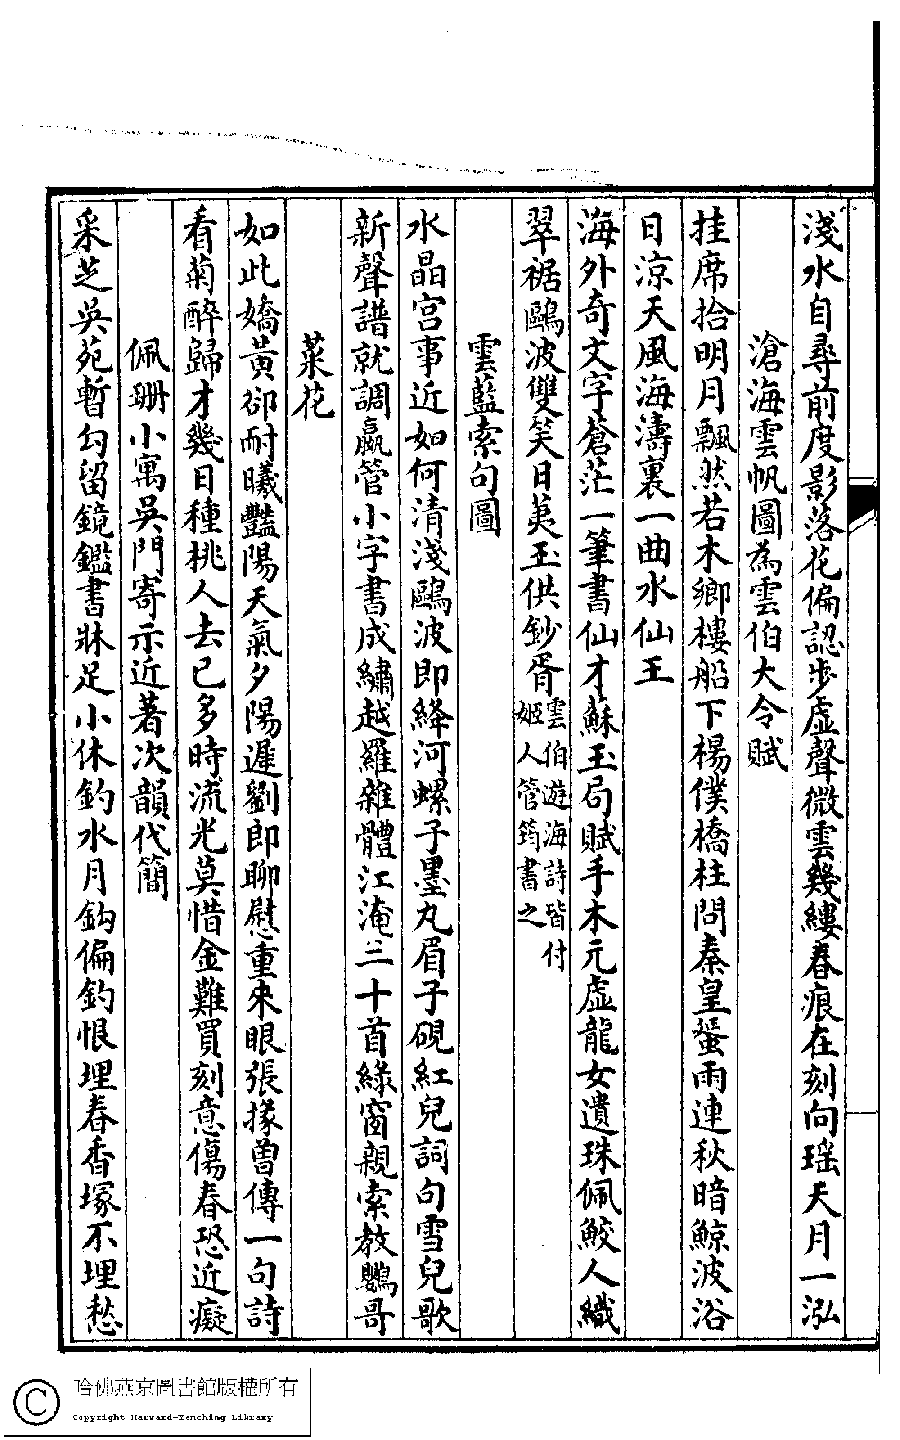 淺水自尋前度影落花偏認步虛聲微雲幾縷春痕在刻向瑶天月一泓
滄海雲帆圖為雲伯大令賦
挂席拾明月飄然若木鄉樓船下楊僕橋柱問秦皇蜃雨連秋暗鯨波浴
日涼天風海濤裏一曲水仙王
海外奇文字蒼茫一筆書仙才蘇玉局賦手木元虛龍女遺珠佩鮫人織
翠裾鷗波雙笑日䔥玉供鈔胥雲伯遊海詩皆付
姬人管筠書之
雲藍索句圖
水晶宮事近如何清淺鷗波即絳河螺子墨丸眉子硯紅兒詞句雪兒歌
新聲譜就調嬴管小字書成繡越羅雜體江淹三十首綠窗親索教鸚哥
菜花
如此嬌黃卻耐曦豔陽天氣夕陽遲劉郎聊慰重來眼張掾曾傳一句詩
看菊醉歸才幾日種桃人去已多時流光莫惜金難買刻意傷春恐近癡
佩珊小寓吳門寄示近著次韻代簡
采芝吳苑暫勾留鏡鑑書牀足小休釣水月鈎偏釣恨埋春香塚不埋愁
哈佛燕京圖書館版權所有
Copyright Harvard-Yenching Library